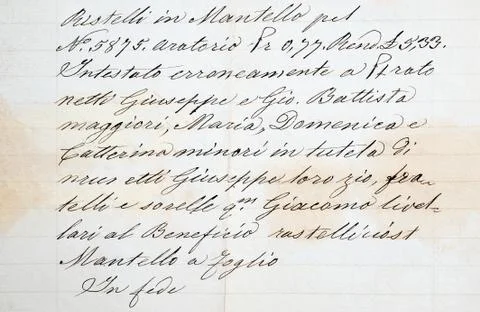 Ristelli in Mantello pel
Nº. 5875. aratorio Pr 0,77. Rend. £ 5,33.
Intestato erroneamente a Prato
netti Giuseppe e Gio. Battista
maggiori, Maria, Domenica e
Catterina minori in tutela di
etti Giuseppe loro zio, fra=
telli e sorelle qm Giacomo livel=
lari al Beneficio
Mantello a Foglio
In fede